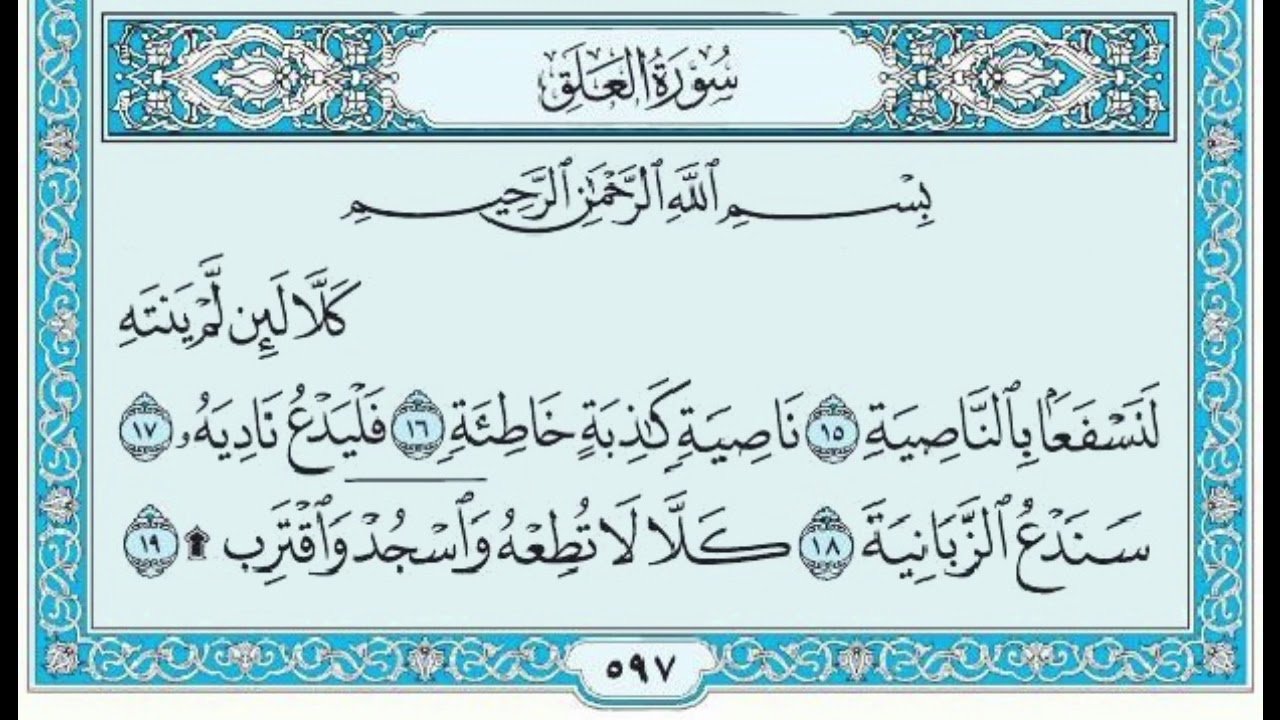 سُورَةُ الْعَلَقِ
بِسْمِ ٱللَّهِ ٱلرَّحْمَٰنِ ٱلرَّحِيمِ
كَلَّا لَئِن لَّمْ يَنتَهِ
لَنَسْفَعًۢا بِٱلنَّاصِيَةِ ١٥ نَاصِيَةٍ كَٰذِبَةٍ خَاطِئَةٍ ١٦ فَلْيَدْعُ نَادِيَهُۥ ١٧
سَنَدْعُ ٱلزَّبَانِيَةَ ١٨ كَلَّا لَا تُطِعْهُ وَٱسْجُدْ وَٱقْتَرِب ۩ ١٩
٥٩٧